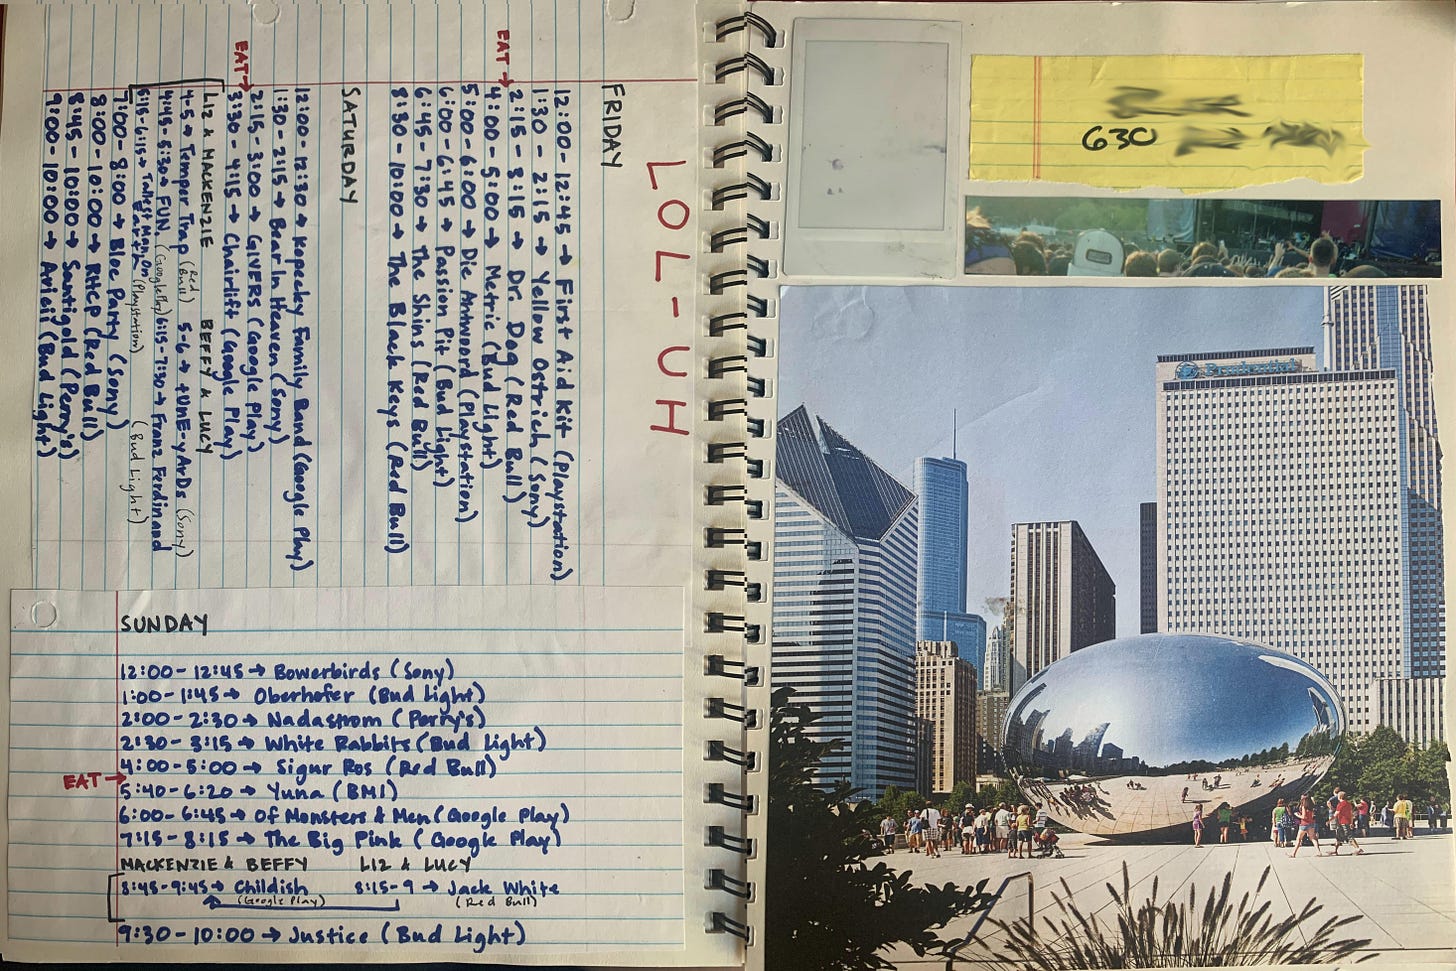 LOL-UH
FRIDAY
12:00-12:45 → First Aid Kit (Playstation)
1:30-2:15 → Yellow Ostrich (Sony)
EAT →
2:15-3:15 → Dr. Dog (Red Bull)
4:00-5:00 → Metric (Bud Light)
5:00-6:00 → Die Antwoord (Playstation)
6:00-6:45 → Passion Pit (Bud Light)
6:45-7:30 → The Shins (Red Bull)
8:30-10:00 → The Black Keys (Red Bull)
SATURDAY
12:00-12:30 → Kopecky Family Band (Google Play)
1:30-2:15 → Bear In Heaven (Sony)
EAT →
2:15-3:00 → GIVERS (Google Play)
3:30-4:15 → Chairlift (Google Play)
LIZ & MACKENZIE BEFFY & LUCY
4-5 → Temper Trap (Red Bull) 5-6 → tUnE-yArDs (Sony)
4:45-5:30 → FUN. (Google Play) 6:15-7:30 → Franz Ferdinand
5:15-6:15 → Tallest Man On Earth (Playstation) (Bud Light)
7:00-8:00 → Bloc Party (Sony)
8:00-10:00 → RHCP (Red Bull)
8:45-10:00 → Santigold (Perry's)
9:00-10:00 → Avicii (Bud Light)
SUNDAY
12:00-12:45 → Bowerbirds (Sony)
1:00-1:45 → Oberhofer (Bud Light)
2:00-2:30 → Nadastrom (Perry's)
2:30-3:15 → White Rabbits (Bud Light)
4:00-5:00 → Sigur Ros (Red Bull)
EAT →
5:40-6:20 → Yuna (BMI)
6:00-6:45 → Of Monsters & Men (Google Play)
7:15-8:15 → The Big Pink (Google Play)
MACKENZIE & BEFFY LIZ & LUCY
8:45-9:45 → Childish 8:15-9 → Jack White
(Google Play) (Red Bull)
9:30-10:00 → Justice (Bud Light)
630
Prudential